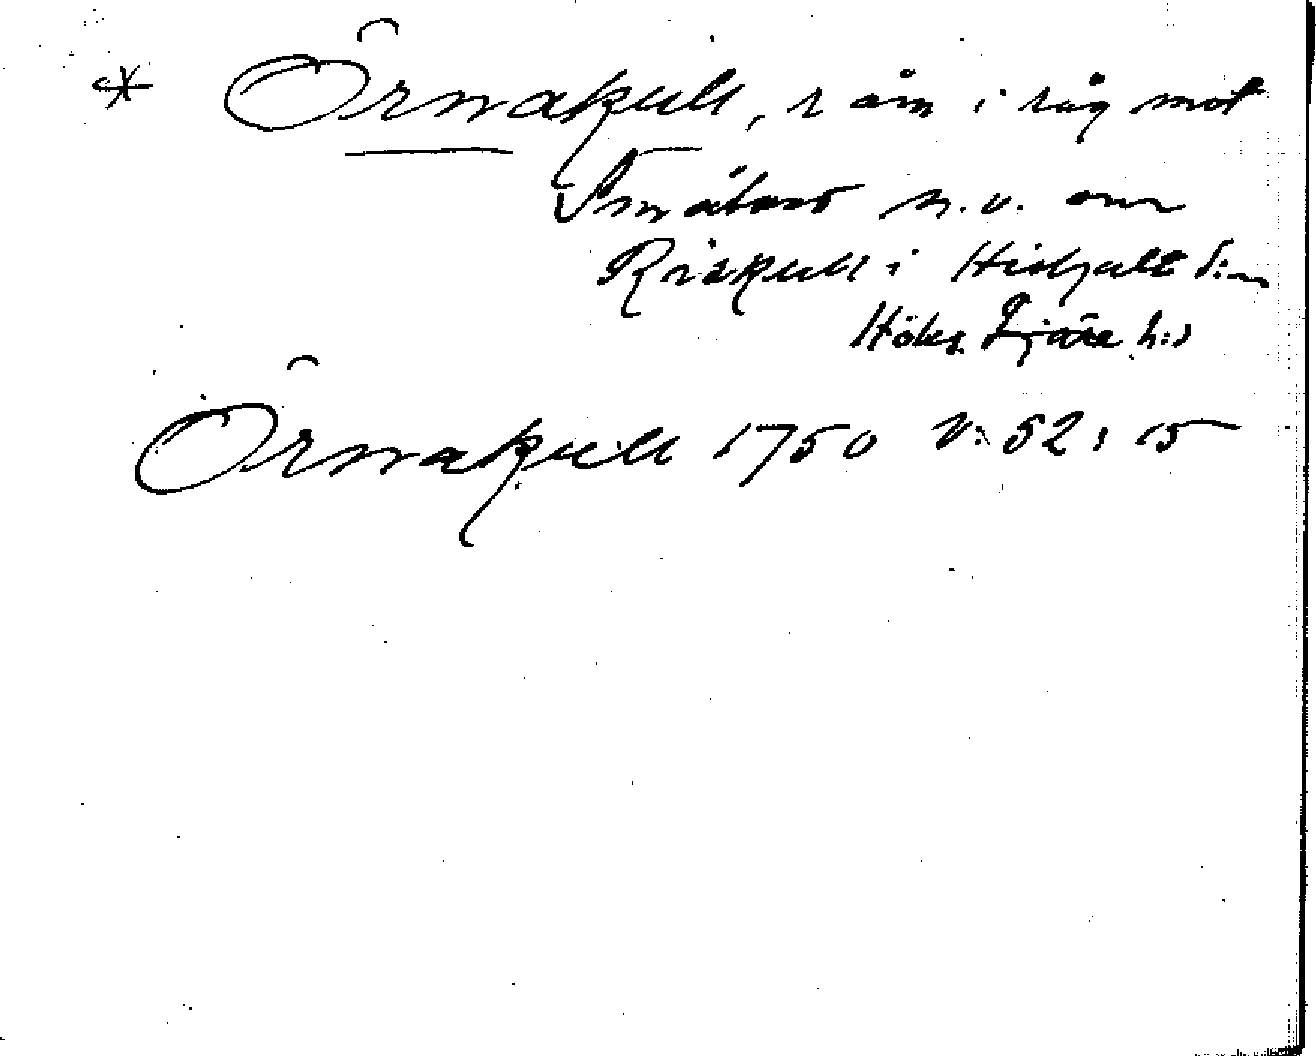 * Örnakull, r åm i råg mot
Småland n.v. om
Riskull i Hishult s:n
Höks Tjäre h:d
Örnakull 1750 V: 52: 15